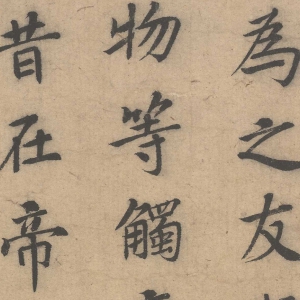 為之友
物等觸
昔在帝